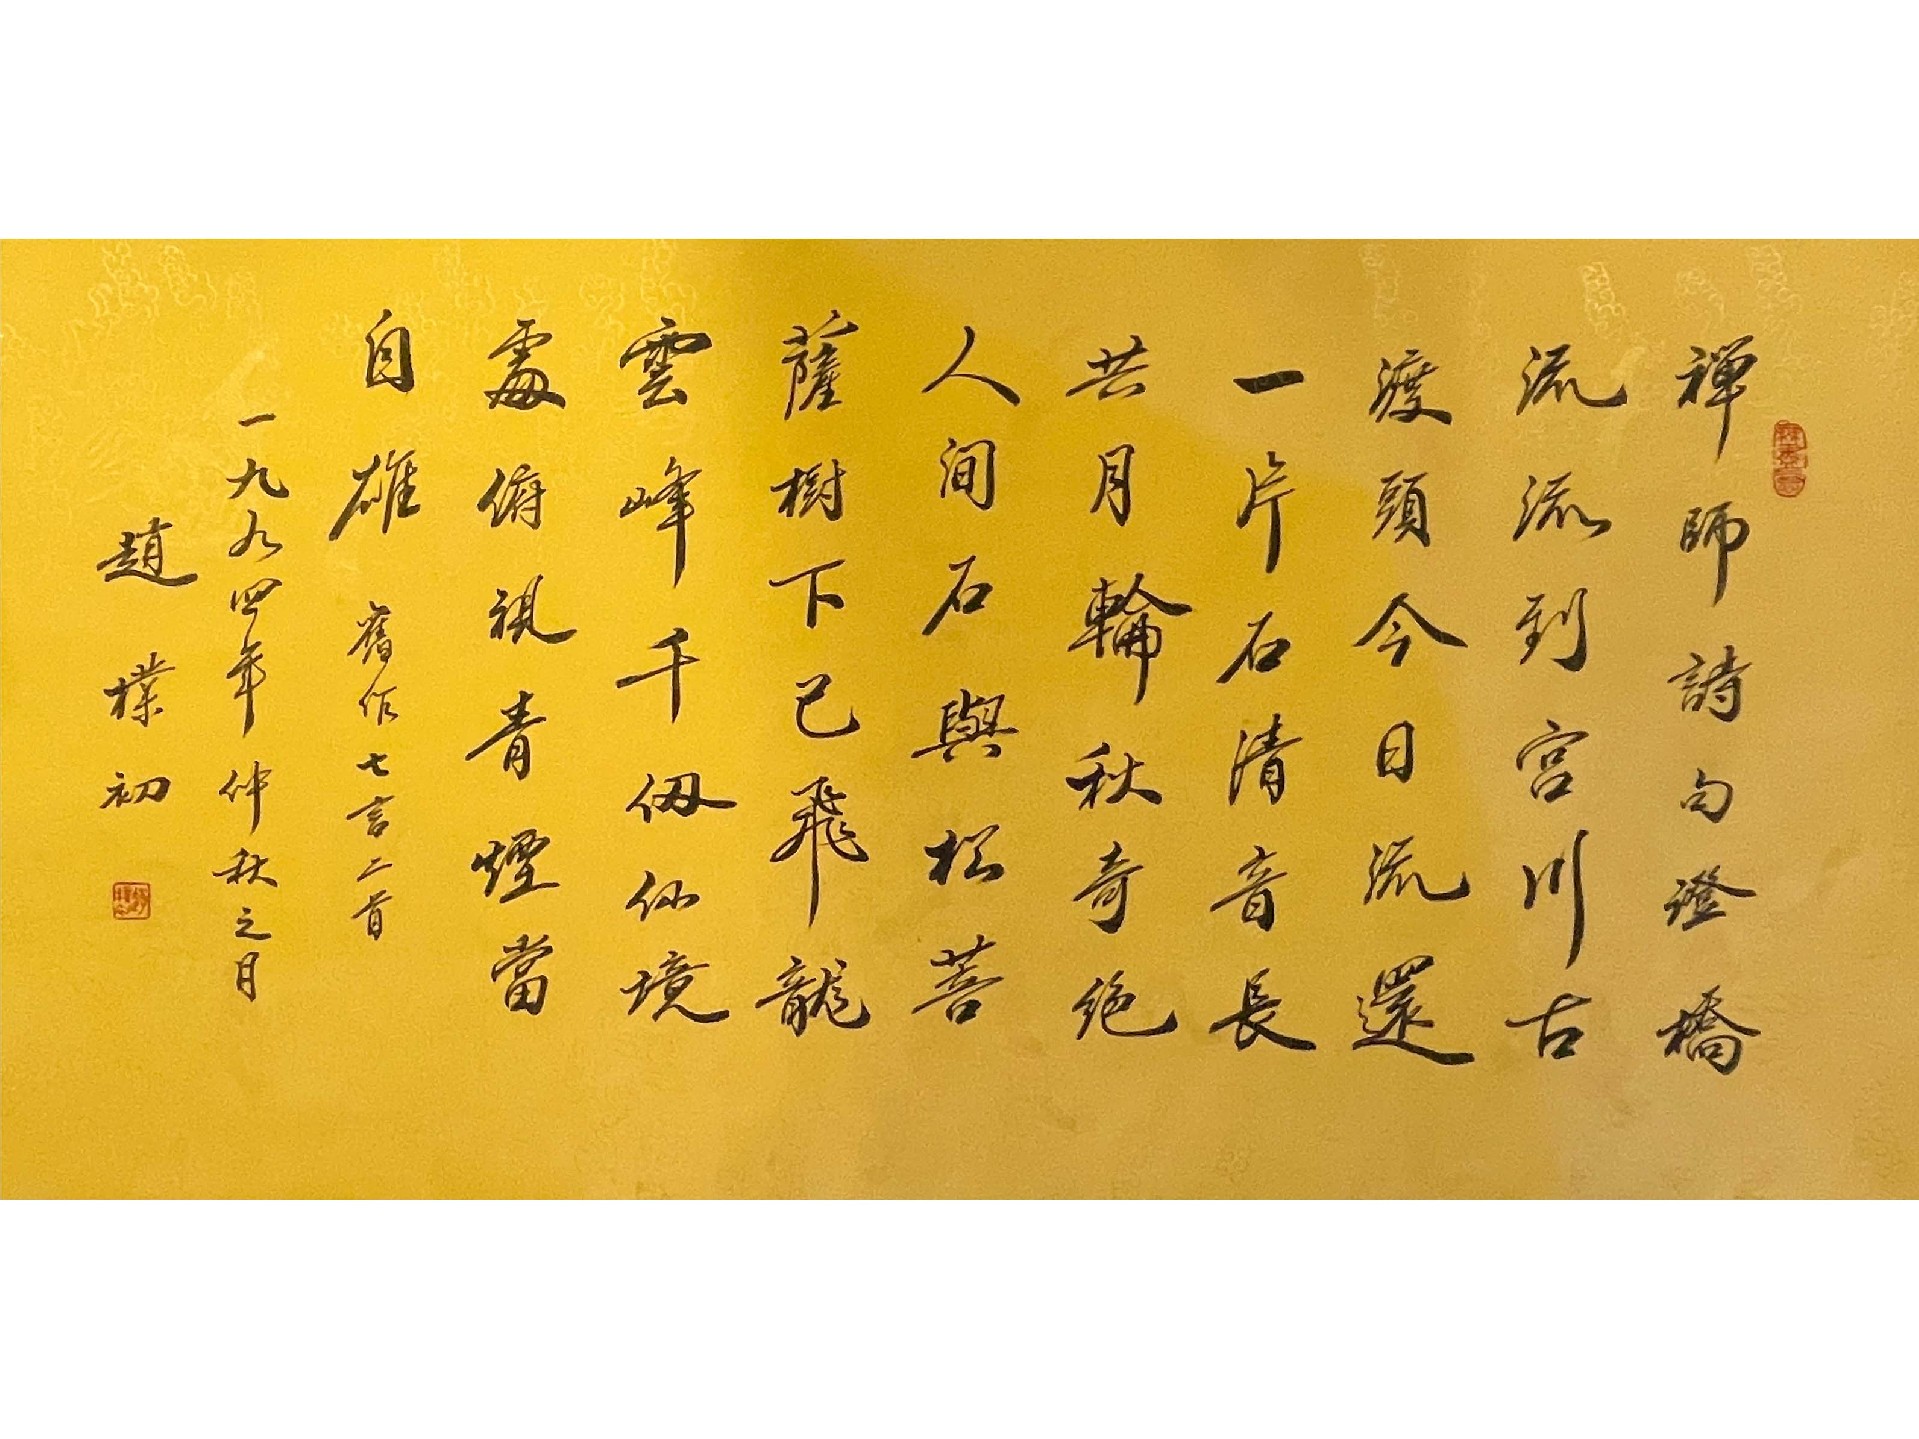 禅師詩句證橋
流流流到宫川古
渡頭今日流還
一片石清音長
共月輪秋奇絶
人间石與松菩
薩樹下已飛龍
雲峰千仭仙境
處俯視青煙當
自雄 舊作七言二首
一九九四年仲秋之月
趙樸初